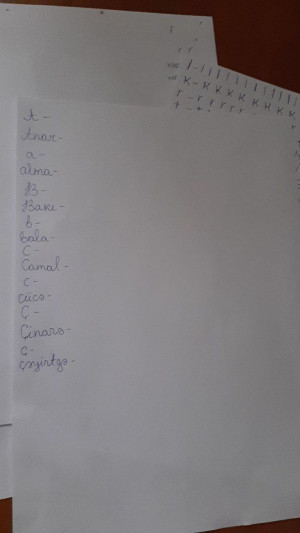 A -
Anar -
a -
alma -
B -
Bakı -
b -
bala -
C -
Camal -
c -
cücə -
Ç -
Çinarə -
ç -
çəyirtgə -
K - K K K K K K K